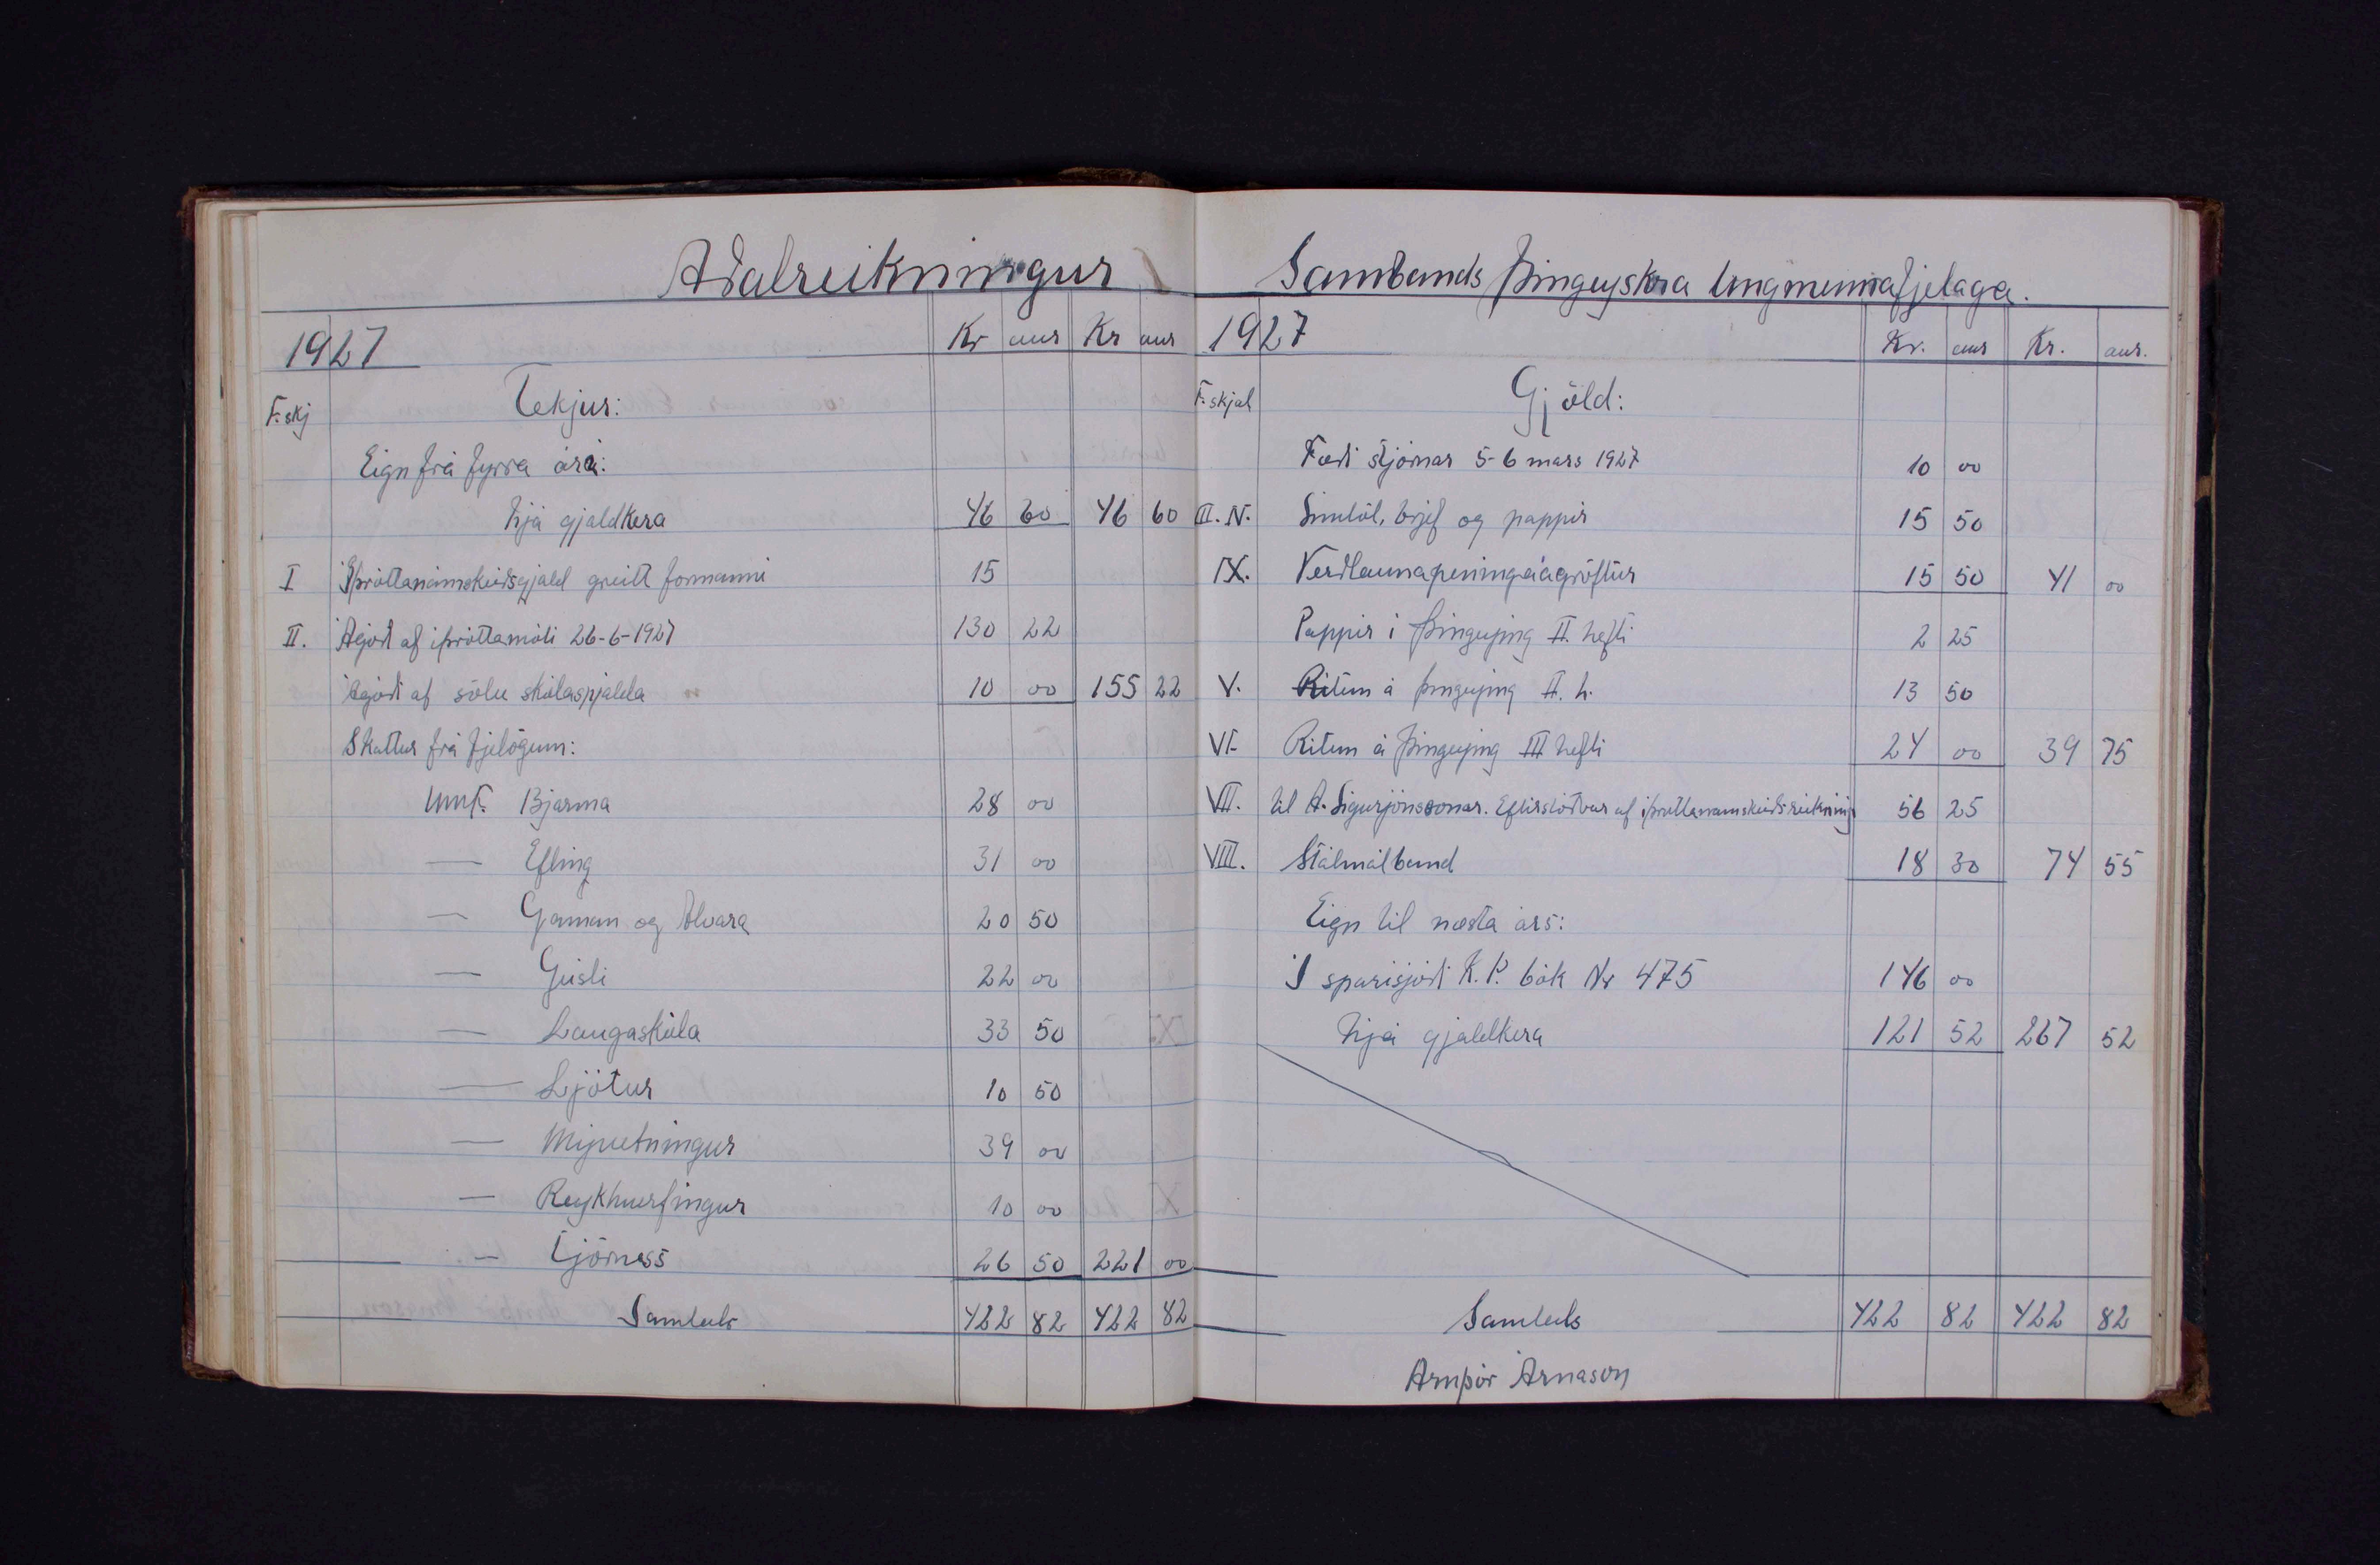 Aðalreikningur
1927 Kr aur Kr aur
F.skj Tekjur:
Eign frá fyrra ári:
hjá gjaldkera 46 60 46 60
I Íþróttanámskeiðsgjald greitt formanni 15
II. Ágóði af íþróttamóti 26-6-1927 130 22
Ágóði af sölu skólaspjalda 10 00 155 22
Skattur frá fjelögum:
Umf. Bjarma 28 00
— Efling 31 00
— Gaman og Alvara 20 50
— Geisli 22 00
— Laugaskóla 33 50
— Ljótur 10 50
— Mývetningur 39 00
— Reykhverfingur 10 00
— Tjörness 26 50 221 00
Samtals 422 82 422 82
Sambands Þingeyskra Ungmennafjelaga.
1927 Kr. aur Kr. aur.
F.skjal Gjöld:
Fæði stjórnar 5-6 mars 1927 10 00
III. IV. Símtöl, brjef og pappír 15 50
IX. Verðlaunapeningaágröftur 15 50 41 00
Pappír í Þingeying II. hefti 2 25
V. Ritun á Þingeying II. h. 13 50
VI. Ritun á Þingeying III hefti 24 00 39 75
VII. til A. Sigurjónssonar. Eftirstöðvar af íþróttanámskeiðsreikning 56 25
VIII. Stálmálband 18 30 74 55
Eign til næsta árs:
Í sparisjóði K.Þ. bók Nr 475 146 00
hjá gjaldkera 121 52 267 52
Samtals 422 82 422 82
Arnþór Árnason